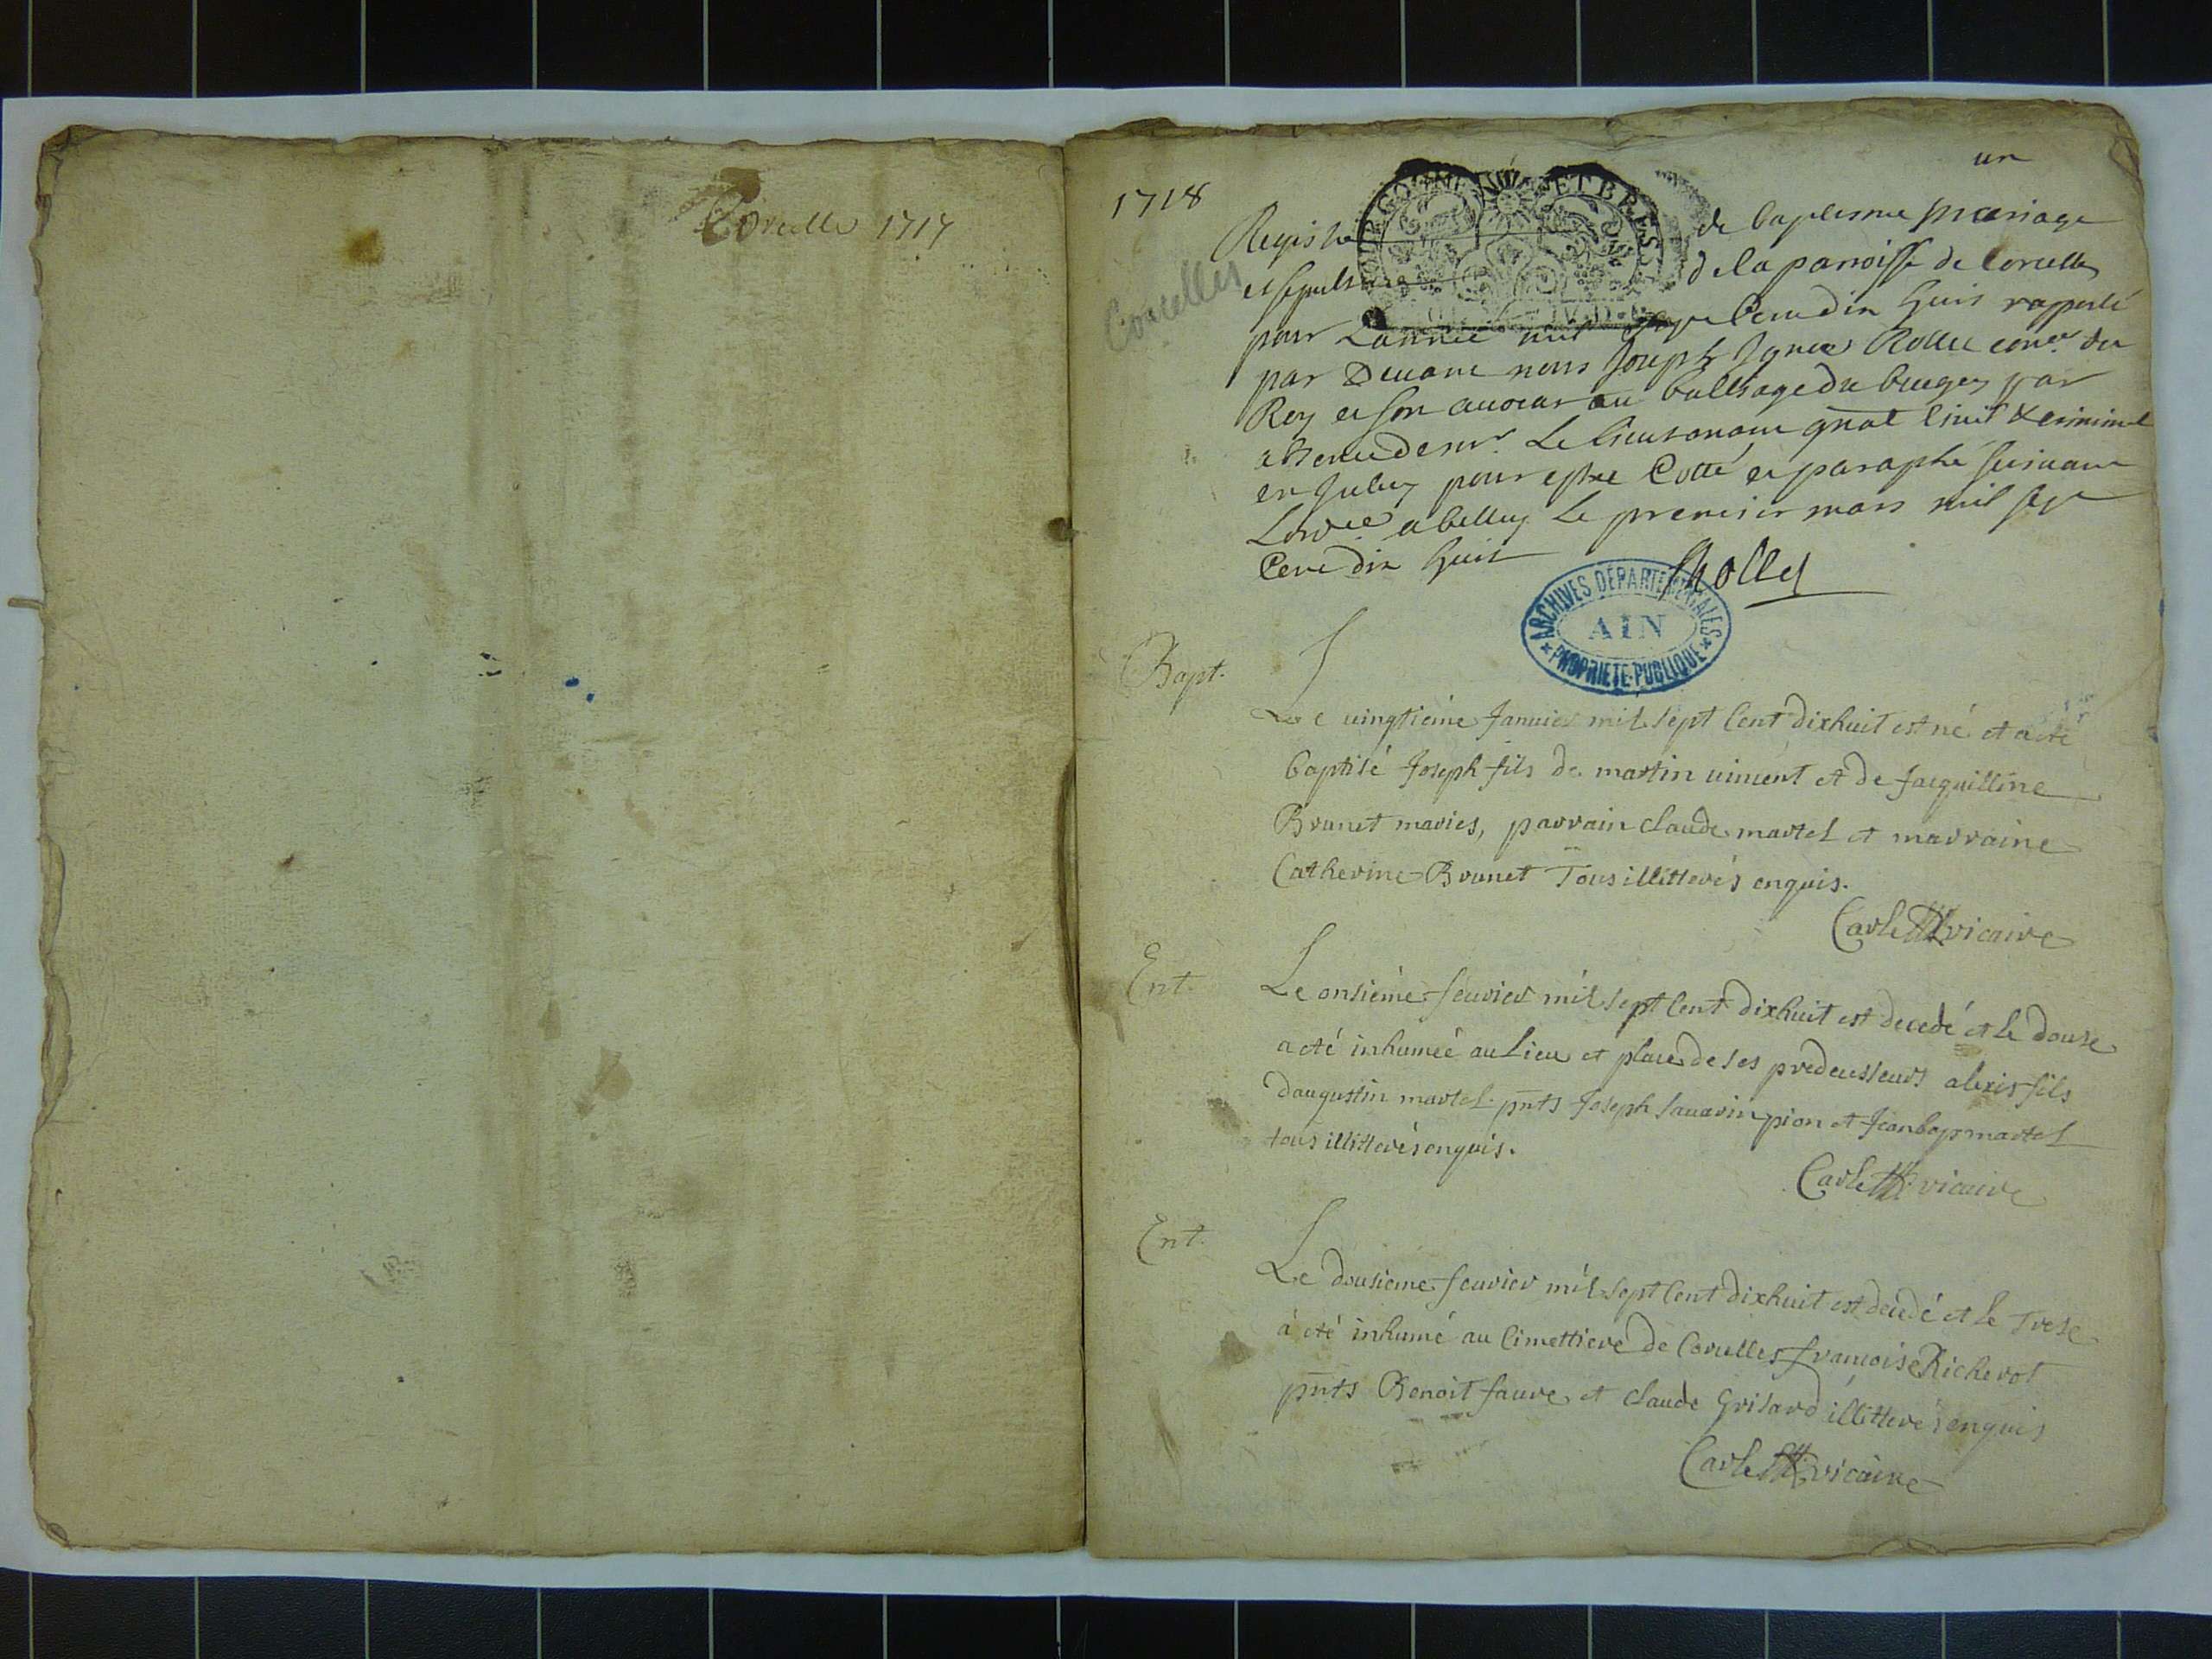 Corcelle 1717
un
1718
BOURGOGNE ET BRESSE
Registre de baptesme mariage
Corcelles
et sepulture de la parroisse de Corcelles
pour Lannée mil sept Cent dix huit rapporté
par Devant nous Joseph Ignace Rollet conser du
Roy et son avocat au balliage du bugey par
absence de mr. Le lieutenant gnâl Civil & criminel
en Jceluy pour estre Cotté et paraphé suivant
Lordce a belley Le premier mars mil sept
Cent dix huit
Rollet
ARCHIVES DÉPARTEMENTALES
AIN
PROPRIÉTÉ PUBLIQUE
Bapt.
Le vingtieme Janvier mil sept Cent dixhuit est né et a eté
baptisé Joseph fils de martin viment et de Jacquilline
Brunet mariés, parrain claude martel et marraine
Catherine Brunet Tous illitterés enquis.
Carle vicaire
Ent.
Le onsiéme fevrier mil sept Cent dixhuit est decedé et le douse
a eté inhumeé au Lieu et place de ses predecesseurs alexis fils
daugustin martel. pnts Joseph Savarin pion et Jeanbap martel
tous illitterés enquis.
Carle vicaire
Ent.
Le dousieme fevrier mil sept Cent dixhuit est decedé et le Trese
á eté inhumé au Cimettiere de Corcelles francoise Richerot
pnts Benoit faure et claude Grisard illitteres enquis
Carle vicaire